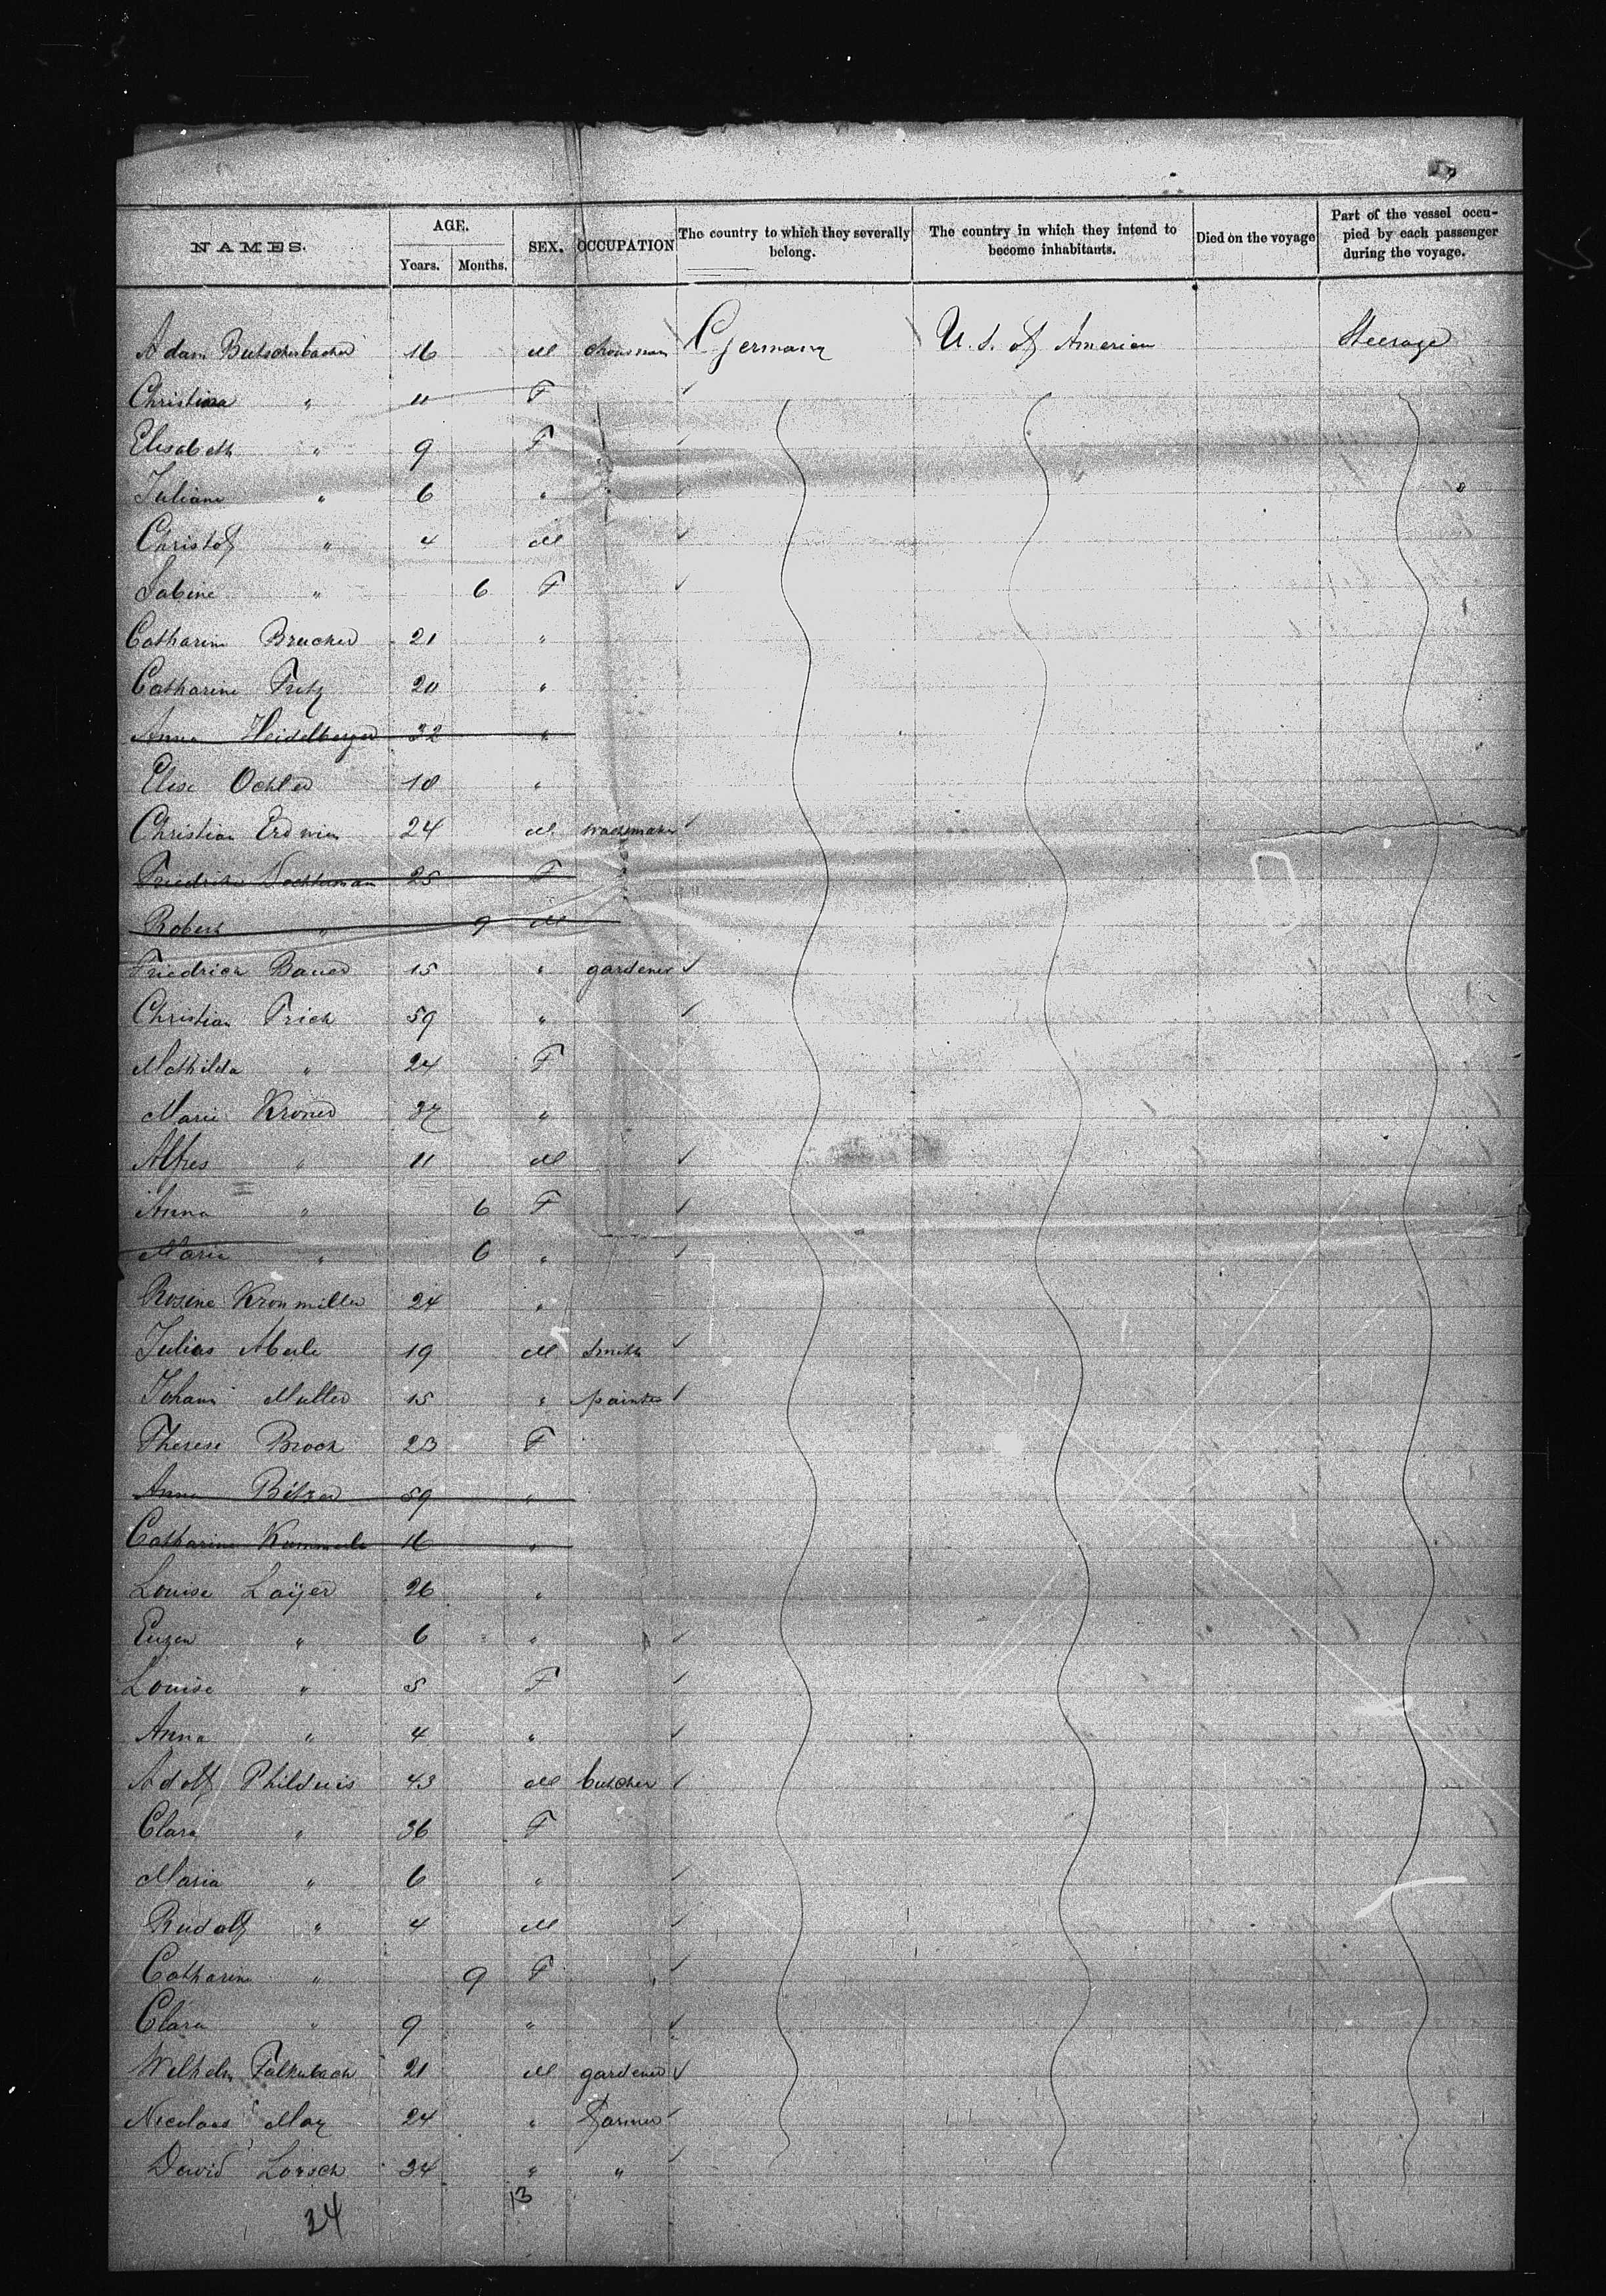 NAMES. AGE. Years. Months. SEX. OCCUPATION The country to which they severally belong. The country in which they intend to become inhabitants. Died on the voyage Part of the vessel occupied by each passenger during the voyage.
Adam Butscherbacher 16 M Germany U. S. of America Steerage
Christina " 11 F
Elisabeth " 9 F
Juliane " 6 "
Christof " 4 M
Sabine " 6 F
Catharine Brucker 21 "
Catharine Fritz 20 "
Anna Heidelberger 32 "
Elise Oehler 18 "
Christian Erdwin 24 M
Friedrike Nachtmann 25 F
Robert " 9 M
Friedrich Bauer 15 " gardener
Christian Frick 59 "
Mathilda " 24 F
Marie Kroner 37 "
Alfres " 11 M
Anna " 6 F
Marie " 6 "
Rosine Kronmiller 24 "
Julius Aberle 19 M Smith
Johann Muller 15 " painter
Therese Brock 23 F
Anna Bitzer 59 "
Catharine Kummerle 16 "
Louise Layer 26 "
Eugen " 6 "
Louise " 5 F
Anna " 4 "
Adolf Philduis 43 M butcher
Clara " 36 F
Maria " 6 "
Rudolf " 4 M
Catharine " 9 F
Clara " 9 "
Wilhelm Falkubach 21 M gardener
Nicolaus May 24 " Farmer
David Lorsch 34 " "
13
34